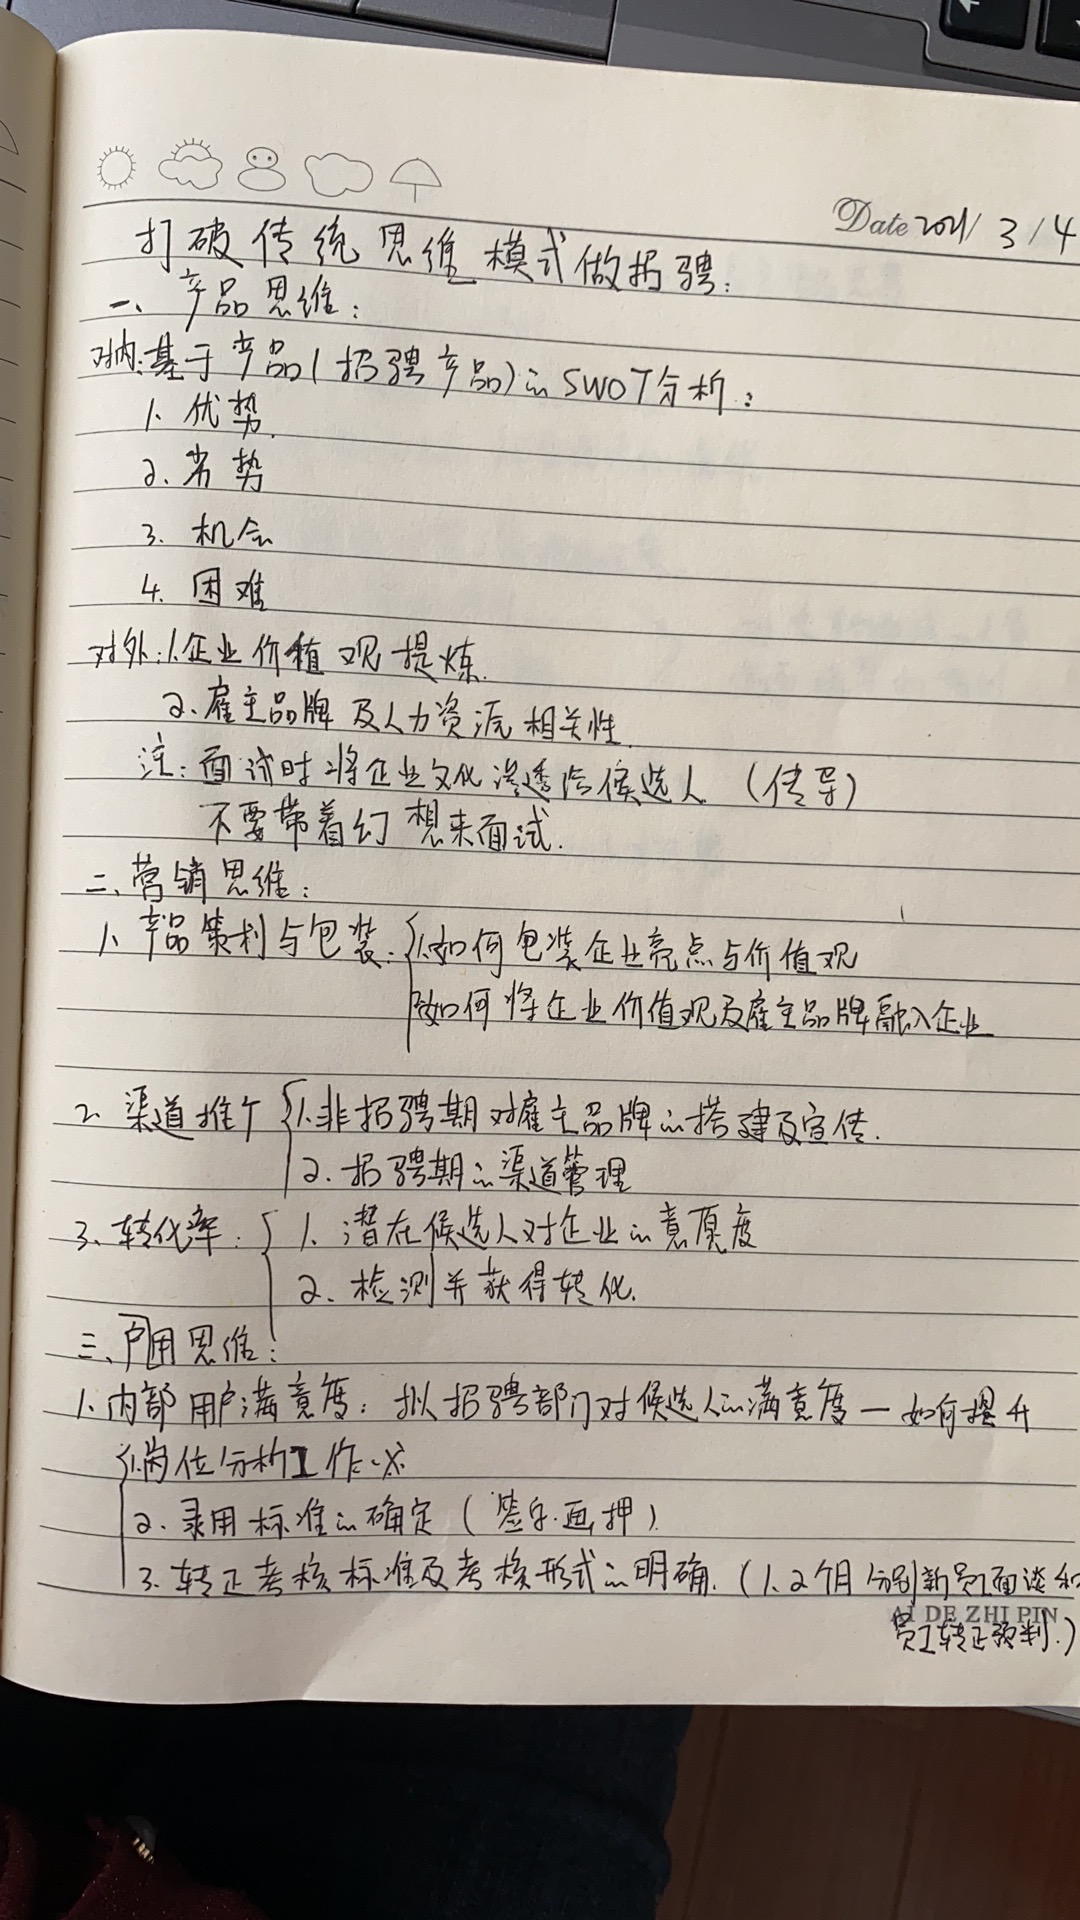 Date 2021/3/4
打破传统思维模式做招聘:
一、产品思维:
对内:基于产品(招聘产品)的SWOT分析:
1. 优势.
2. 劣势
3. 机会
4. 困难
对外:1.企业价值观提炼.
2.雇主品牌及人力资源相关性.
注:面试时将企业文化渗透给候选人(传导)
不要带着幻想来面试.
二、营销思维:
1、产品策划与包装:1.如何包装企业亮点与价值观
2.如何将企业价值观及雇主品牌融入企业
2. 渠道推广 1.非招聘期对雇主品牌的搭建及宣传.
2.招聘期的渠道管理
3、转化率: 1. 潜在候选人对企业的意愿度
2. 检测并获得转化.
三、户用思维:
1.内部用户满意度:拟招聘部门对候选人的满意度—如何提升
1.岗位分析工作.
2.录用标准的确定(签字.画押)
3.转正考核标准及考核形式的明确.(1.2个月分别新员工面谈和
AI DE ZHI PIN
员工转正预判.)